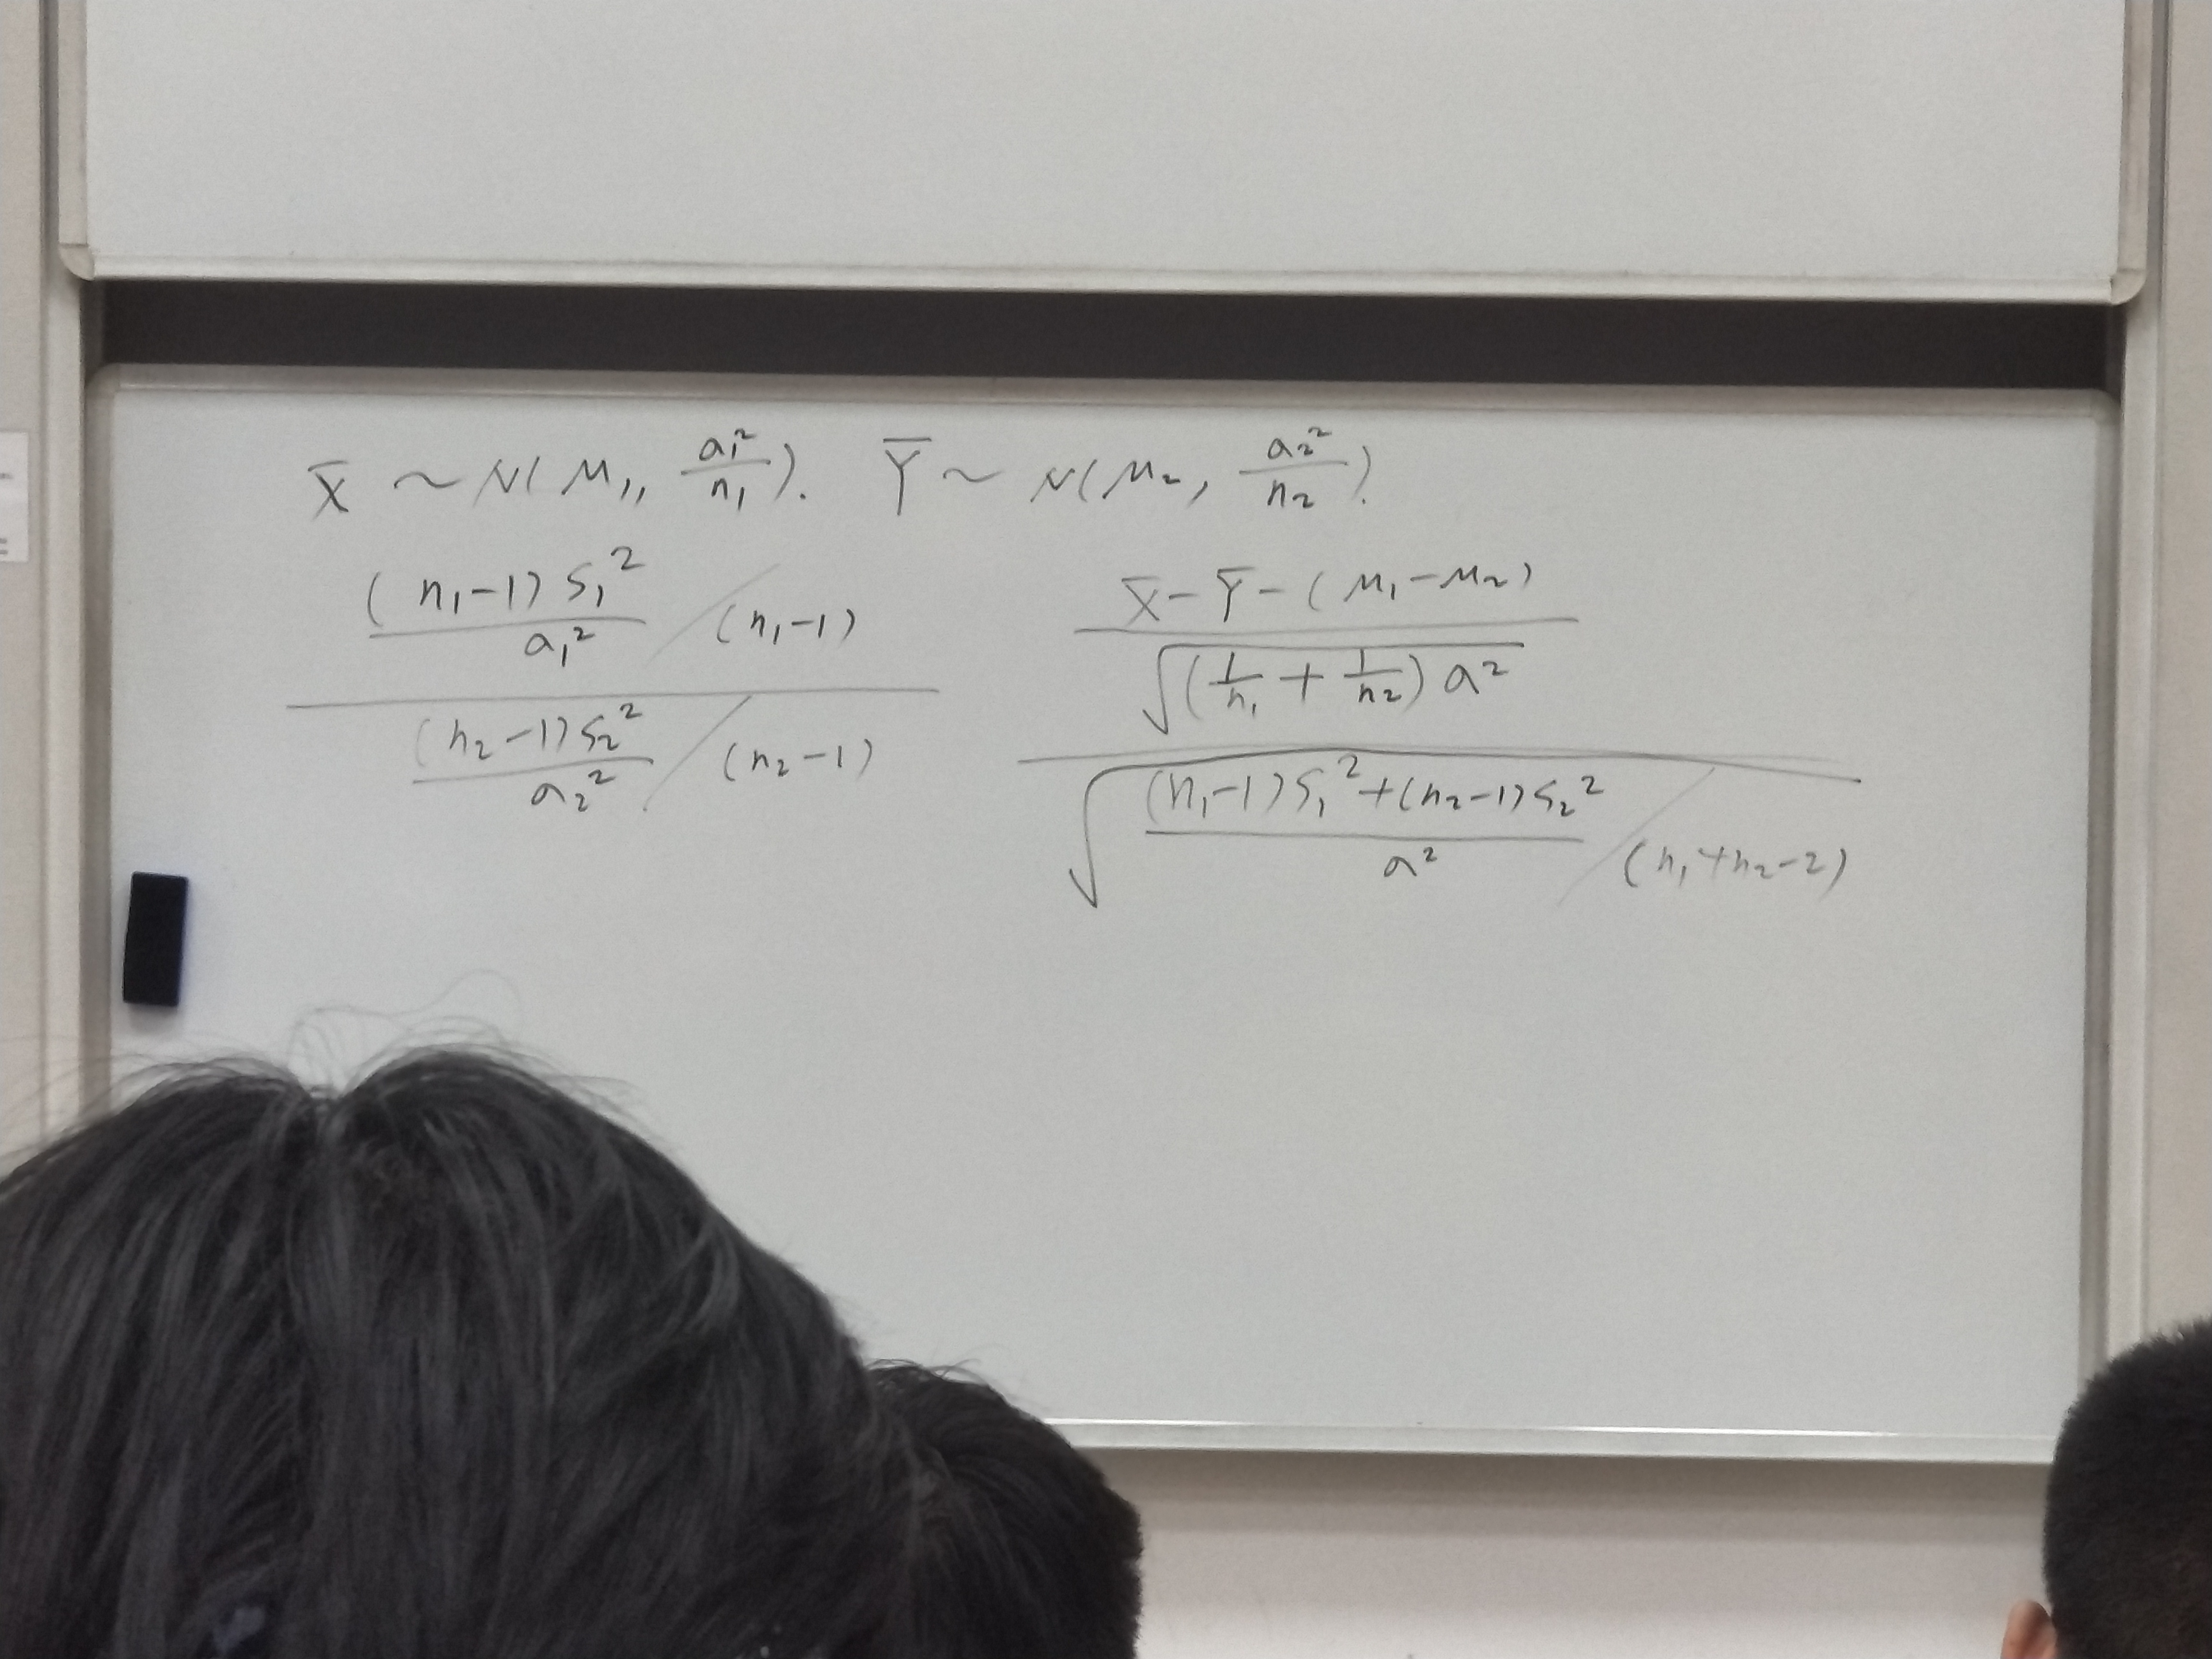 X̄ ~ N(μ₁, a₁²/n₁). Ȳ ~ N(μ₂, a₂²/n₂).
((n₁-1)S₁²/a₁² / (n₁-1)) / ((n₂-1)S₂²/a₂² / (n₂-1))
((X̄-Ȳ-(μ₁-μ₂)) / √((1/n₁ + 1/n₂) a²)) / √(((n₁-1)S₁²+(n₂-1)S₂²)/a² / (n₁+n₂-2))